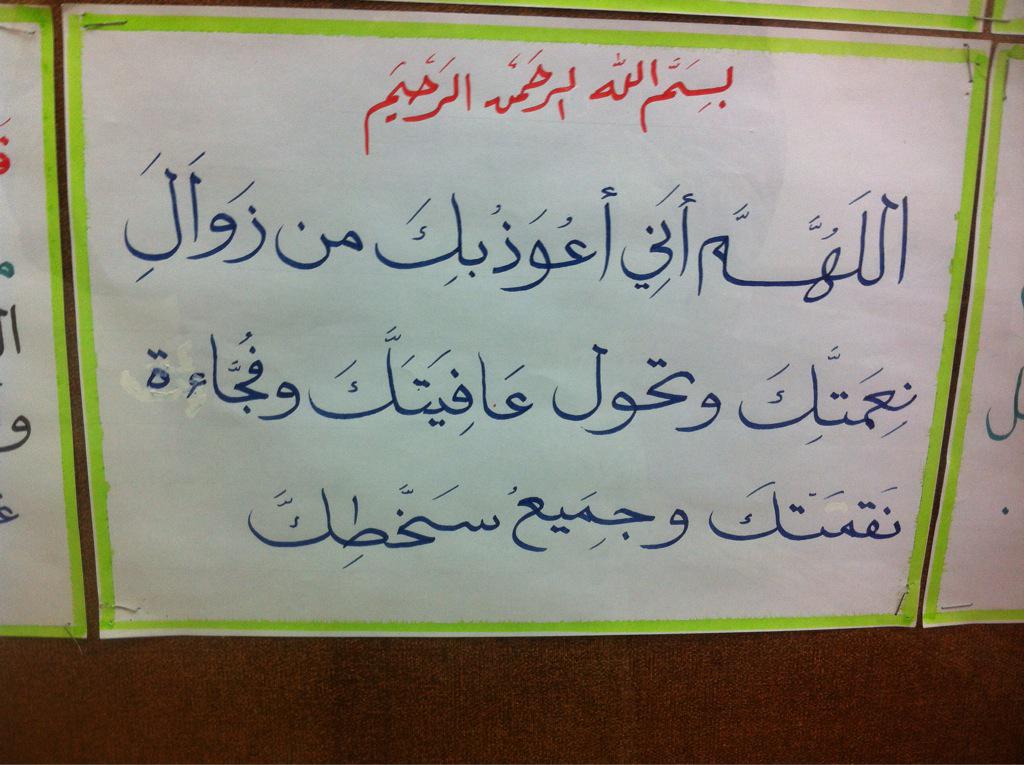 بِسَمَّ الله الرحَمَن الرَحَيَم
اللَهُمَّ أنَي أعُوَذُبِكَ من زَوَاَلَِ
نِعَمتَّلِكَ وتحول عَافِيَتَلَّكَ وفُجَّاءة
نَقمَتكَ وجمِيَعُ سَخَّطِكَّ